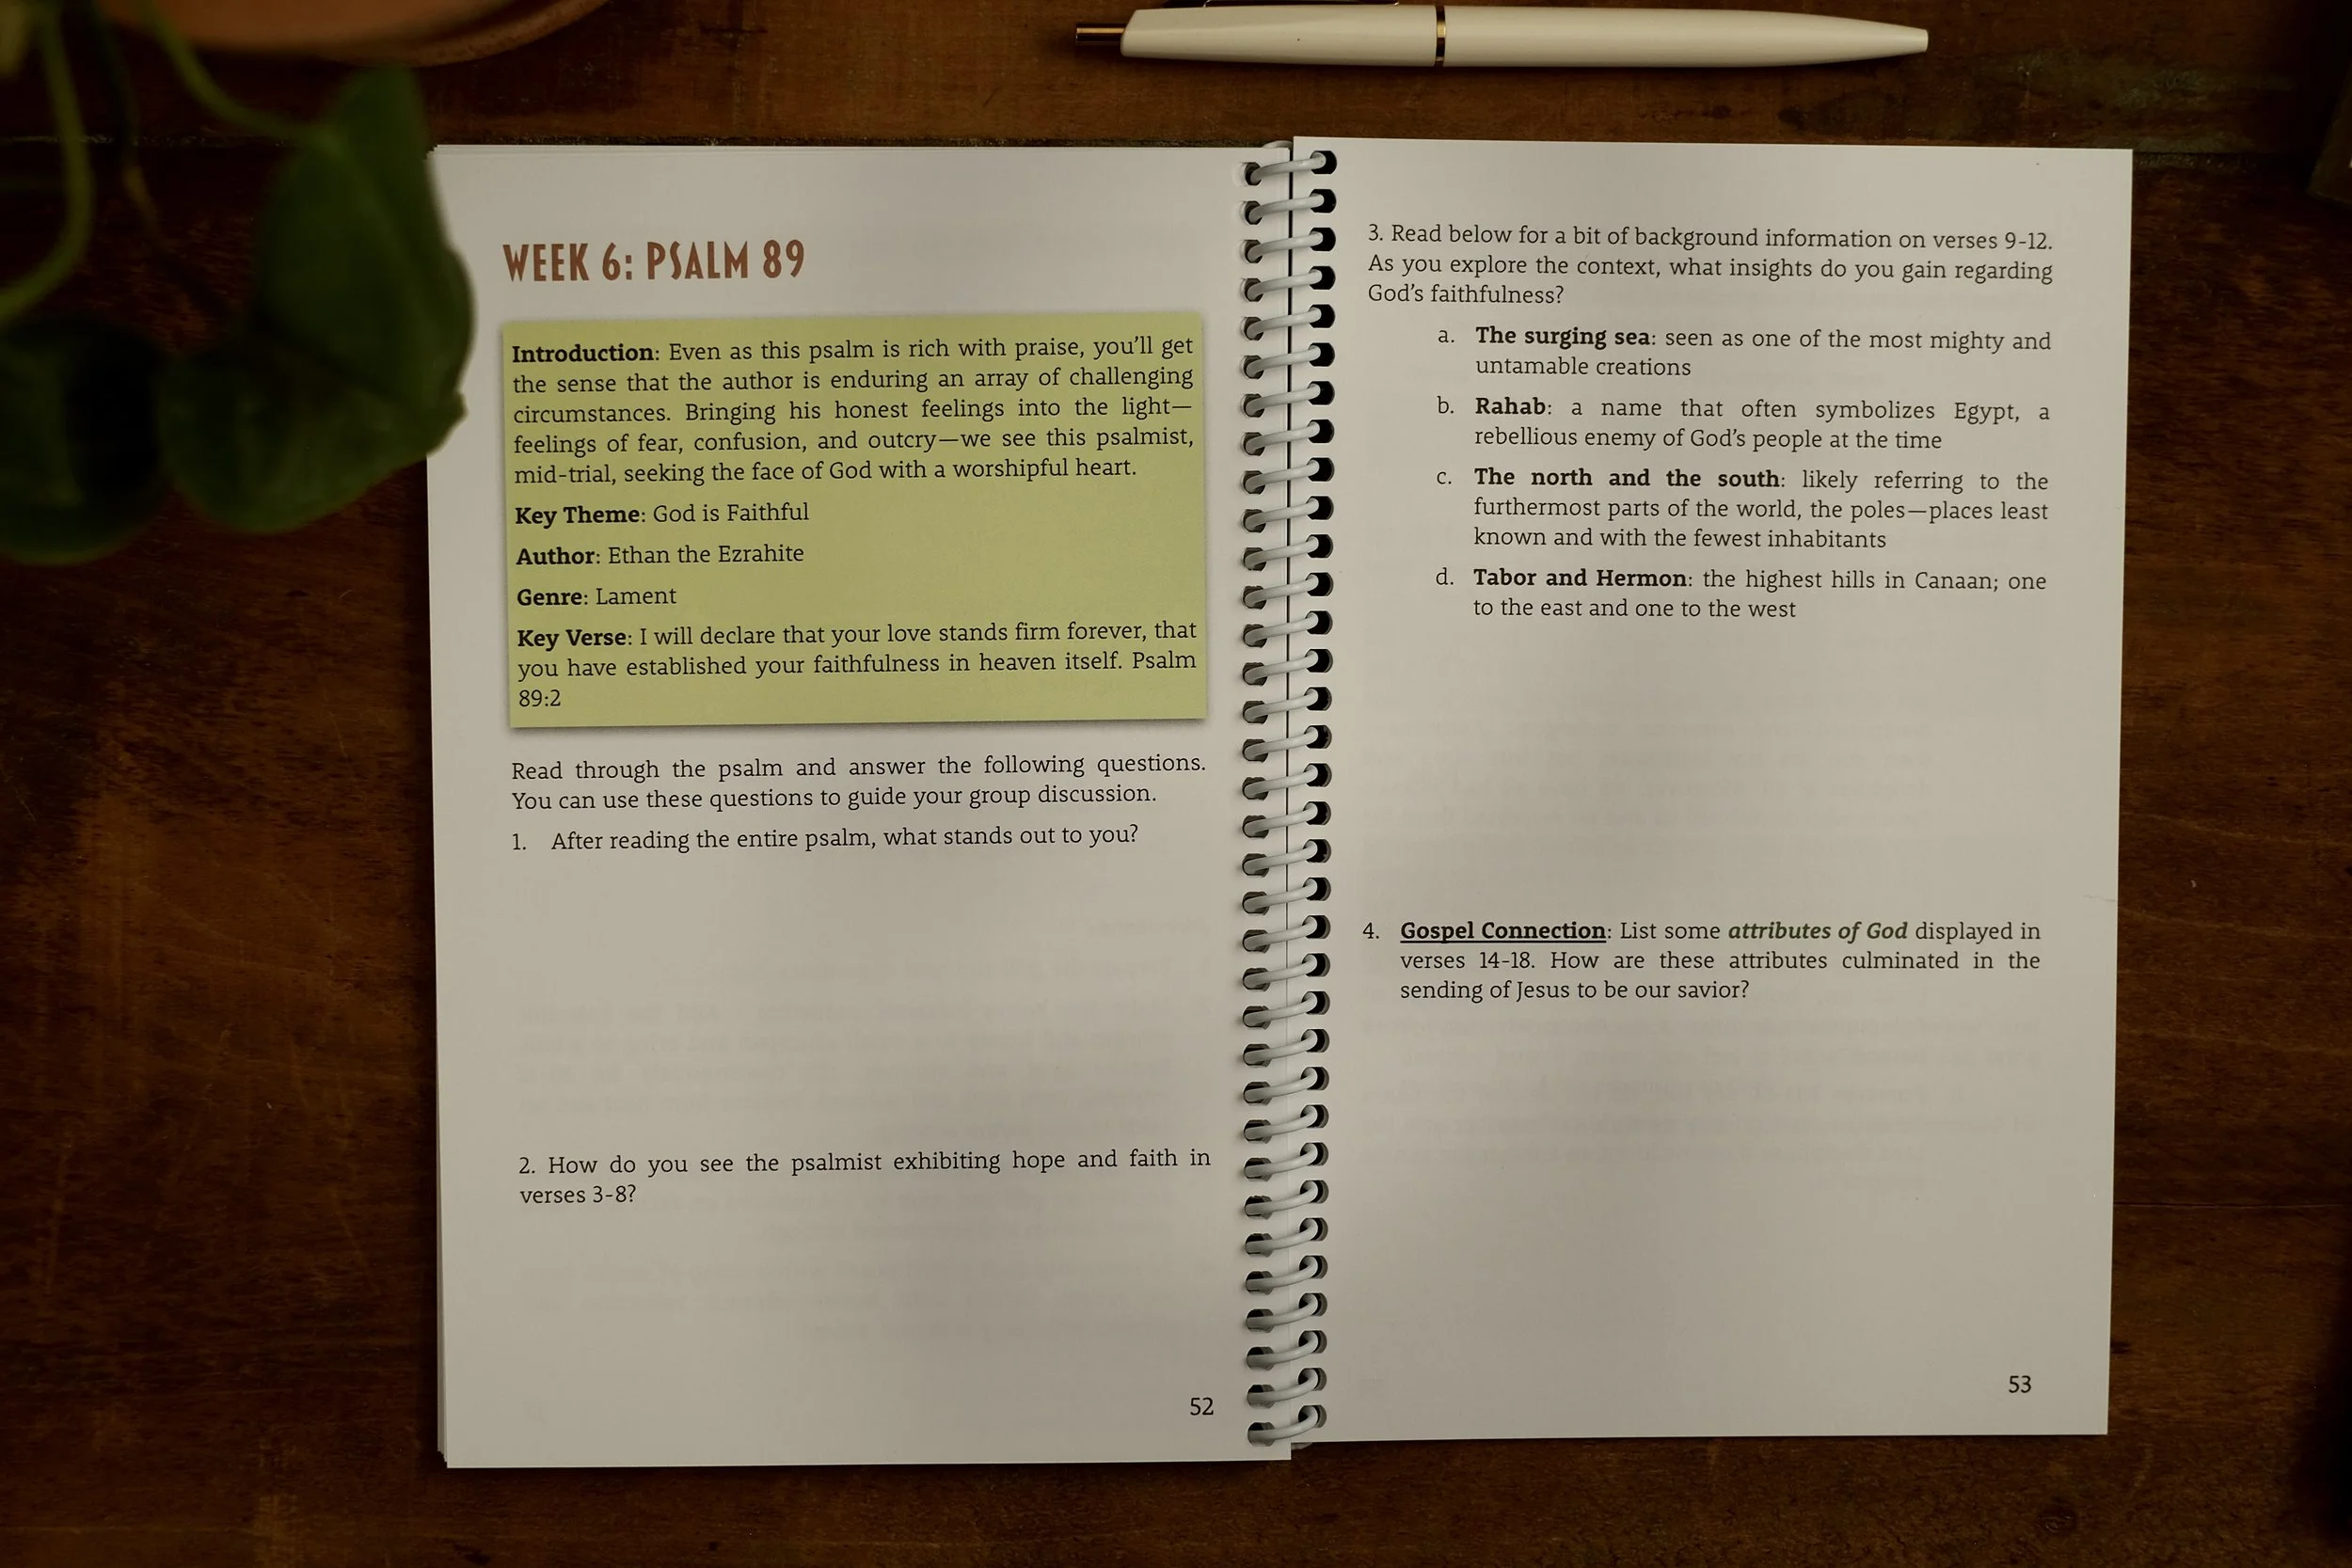 WEEK 6: PSALM 89
Introduction: Even as this psalm is rich with praise, you'll get
the sense that the author is enduring an array of challenging
circumstances. Bringing his honest feelings into the light—
feelings of fear, confusion, and outcry—we see this psalmist,
mid-trial, seeking the face of God with a worshipful heart.
Key Theme: God is Faithful
Author: Ethan the Ezrahite
Genre: Lament
Key Verse: I will declare that your love stands firm forever, that
you have established your faithfulness in heaven itself. Psalm
89:2
Read through the psalm and answer the following questions.
You can use these questions to guide your group discussion.
1. After reading the entire psalm, what stands out to you?
2. How do you see the psalmist exhibiting hope and faith in
verses 3-8?
52
3. Read below for a bit of background information on verses 9-12.
As you explore the context, what insights do you gain regarding
God's faithfulness?
a. The surging sea: seen as one of the most mighty and
untamable creations
b. Rahab: a name that often symbolizes Egypt, a
rebellious enemy of God's people at the time
c. The north and the south: likely referring to the
furthermost parts of the world, the poles—places least
known and with the fewest inhabitants
d. Tabor and Hermon: the highest hills in Canaan; one
to the east and one to the west
4. Gospel Connection: List some attributes of God displayed in
verses 14-18. How are these attributes culminated in the
sending of Jesus to be our savior?
53